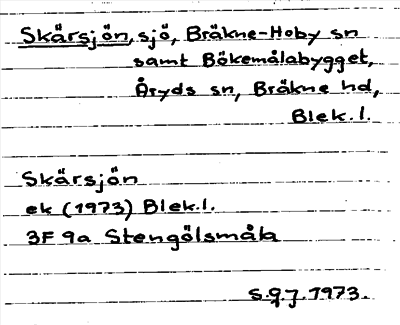 Skärsjön, sjö, Bräkne-Hoby sn
samt Bökemålabygget,
Åryds sn, Bräkne hd,
Blek.l.
Skärsjön
ek (1973) Blek.l.
3F 9a Stengölsmåla
s.g.j. 1973.